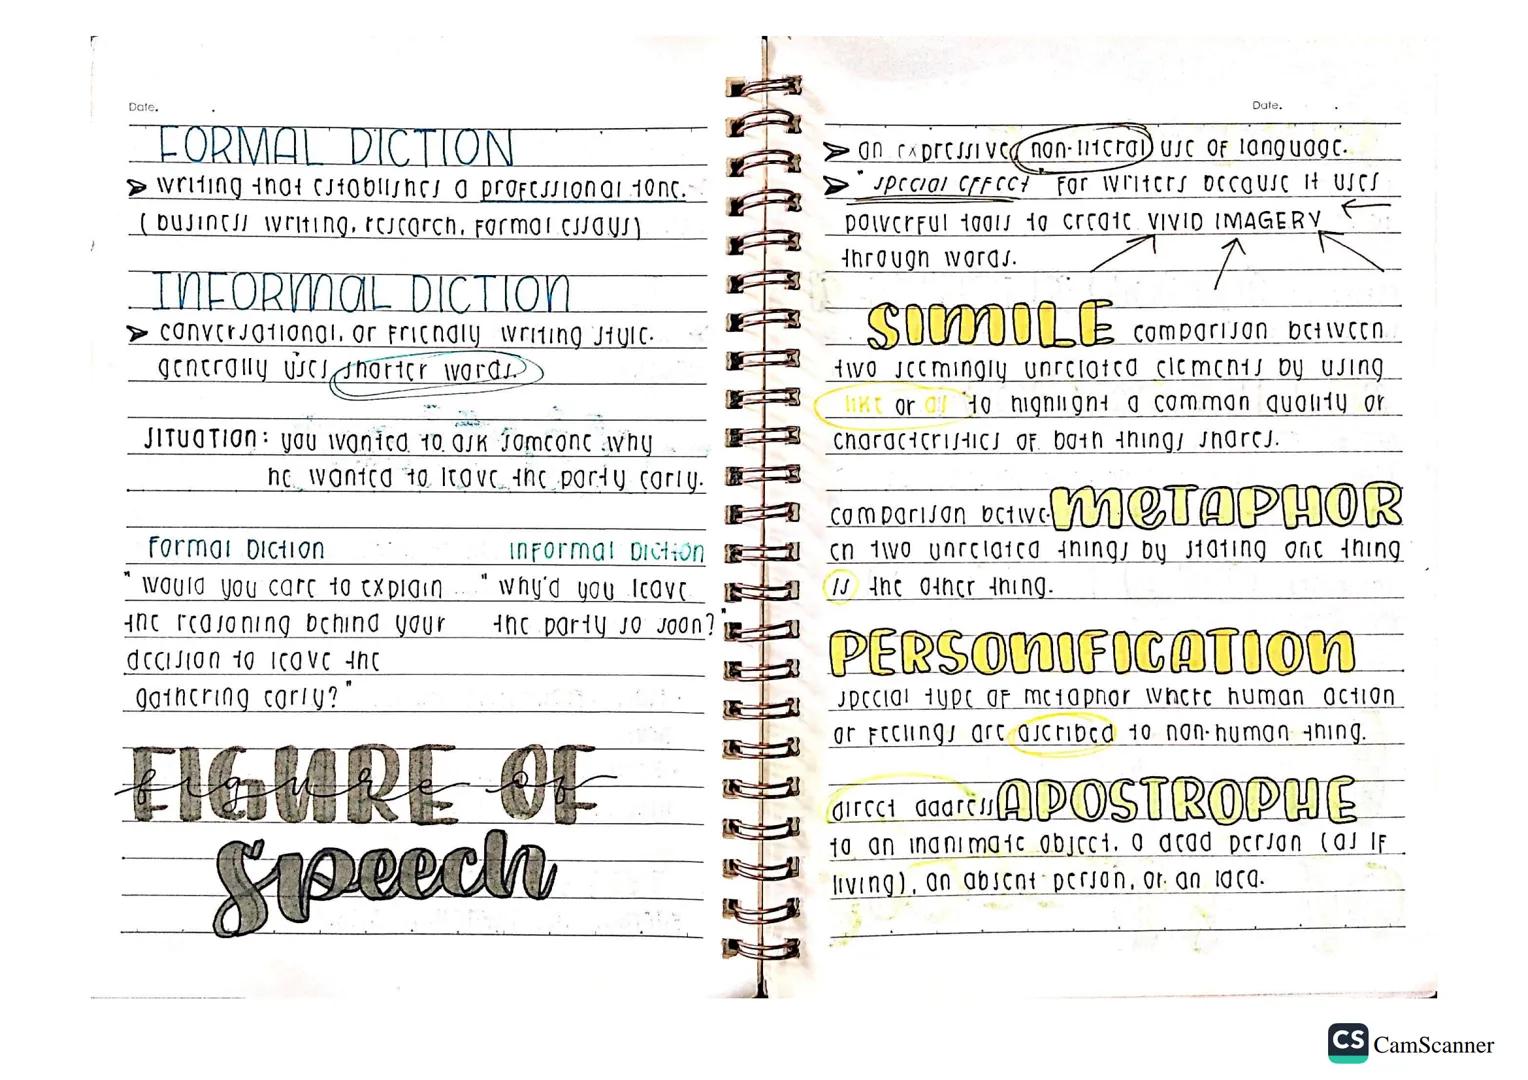 Date.
FORMAL DICTION
➤ writing that establishes a professional tone.
(business writing, research, formal essays)
INFORMAL DICTION
➤ conversational, or friendly writing style.
generally uses shorter words.
SITUATION: you wanted to ask someone why
he wanted to leave the party early.
Formal Diction
"Would you care to explain
the reasoning behind your
decision to leave the
gathering early?"
Informal Diction
"Why'd you leave
the party so soon?"
FIGURE OF
figure of
Speech
Date.
➤ an expressive, non-literal use of language.
➤ "special effect" for writers because it uses
powerful tools to create VIVID IMAGERY
through words.
SIMILE comparison between
two seemingly unrelated elements by using
like or as to highlight a common quality or
characteristics of both things shares.
comparison betwe- METAPHOR
en two unrelated things by stating one thing
is the other thing.
PERSONIFICATION
special type of metaphor where human action
or feelings are ascribed to non-human thing.
direct address APOSTROPHE
to an inanimate object, a dead person (as if
living), an absent person, or an idea.
CS CamScanner